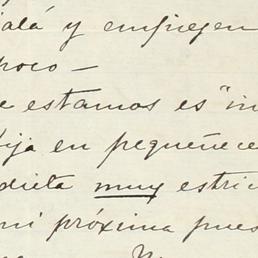 alá y empiezen
poco —
e estamos es "in
fija en pequeñece
dieta muy estric
mi próxima pues